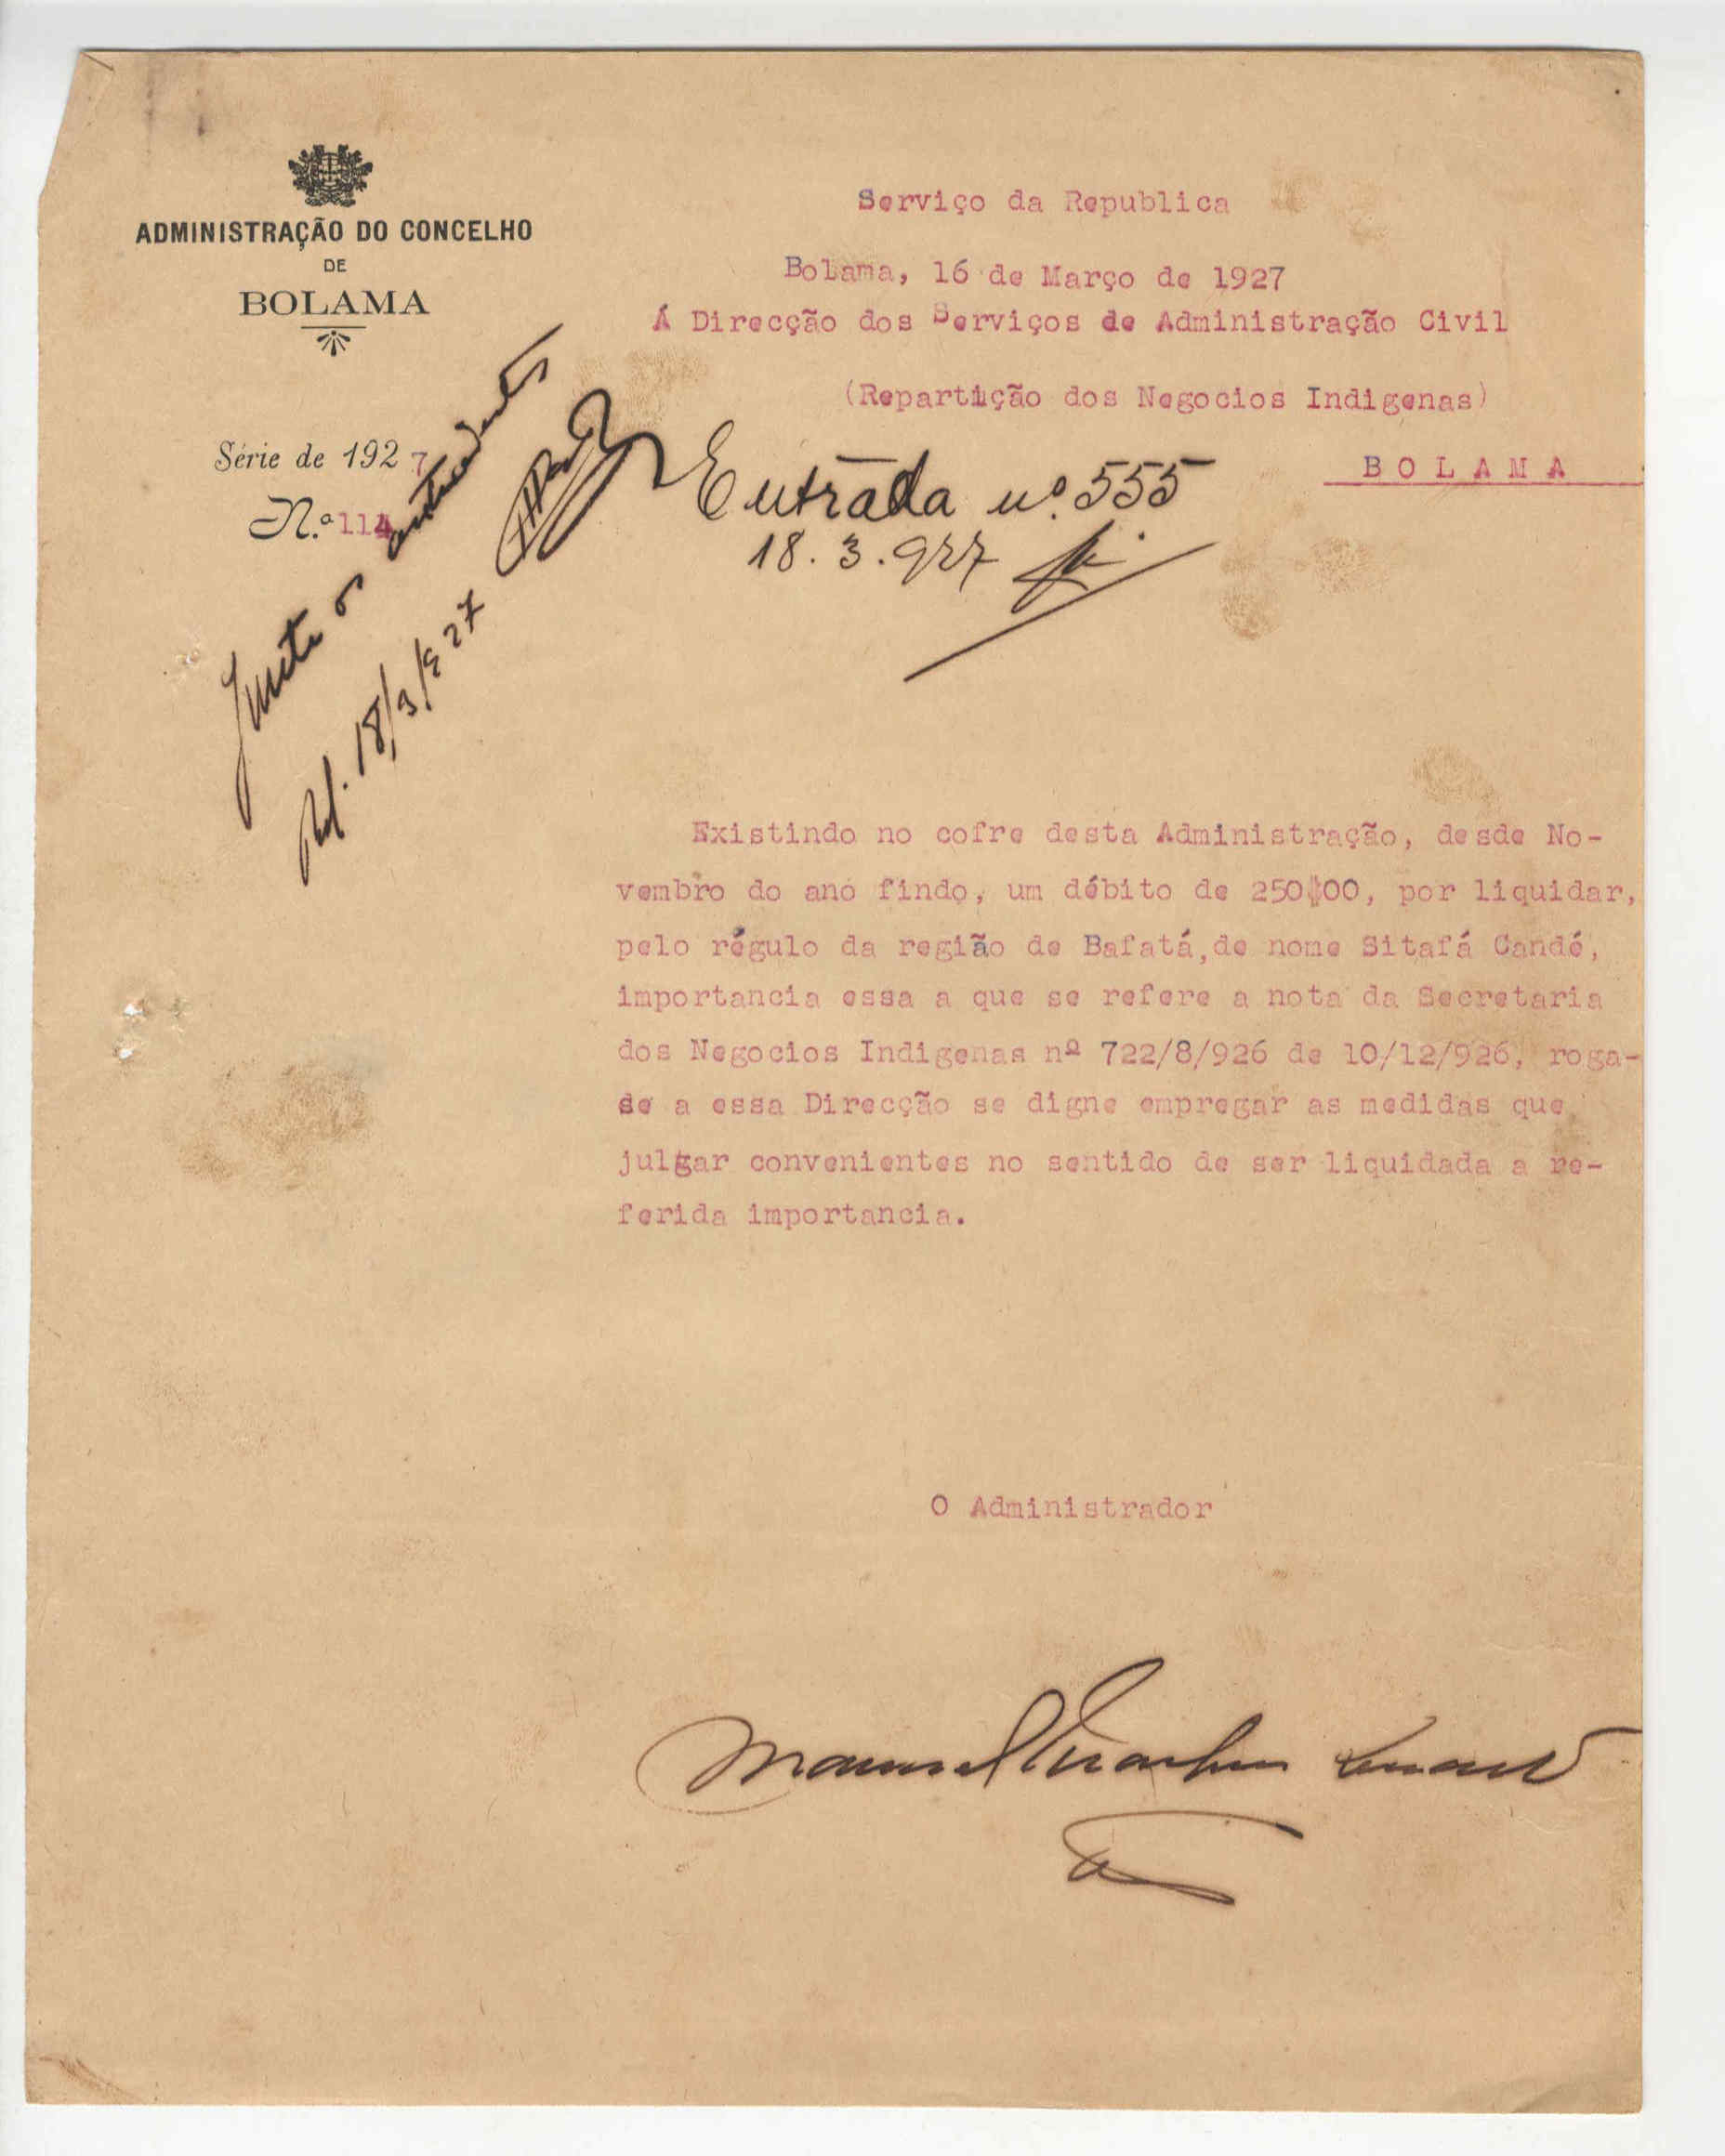 ADMINISTRAÇÃO DO CONCELHO
DE
BOLAMA
Série de 1927
N.º 114
Serviço da Republica
Bolama, 16 de Março de 1927
Á Direcção dos Serviços de Administração Civil
(Repartição dos Negocios Indigenas)
BOLAMA
Junte os antecedentes
18/3/927
Entrada nº 555
18.3.927
Existindo no cofre desta Administração, desde No-
vembro do ano findo, um débito de 250$00, por liquidar,
pelo régulo da região de Bafatá,de nome Sitafá Candé,
importancia essa a que se refere a nota da Secretaria
dos Negocios Indigenas nº 722/8/926 de 10/12/926, roga-
se a essa Direcção se digne empregar as medidas que
julgar convenientes no sentido de ser liquidada a re-
ferida importancia.
O Administrador
Manuel